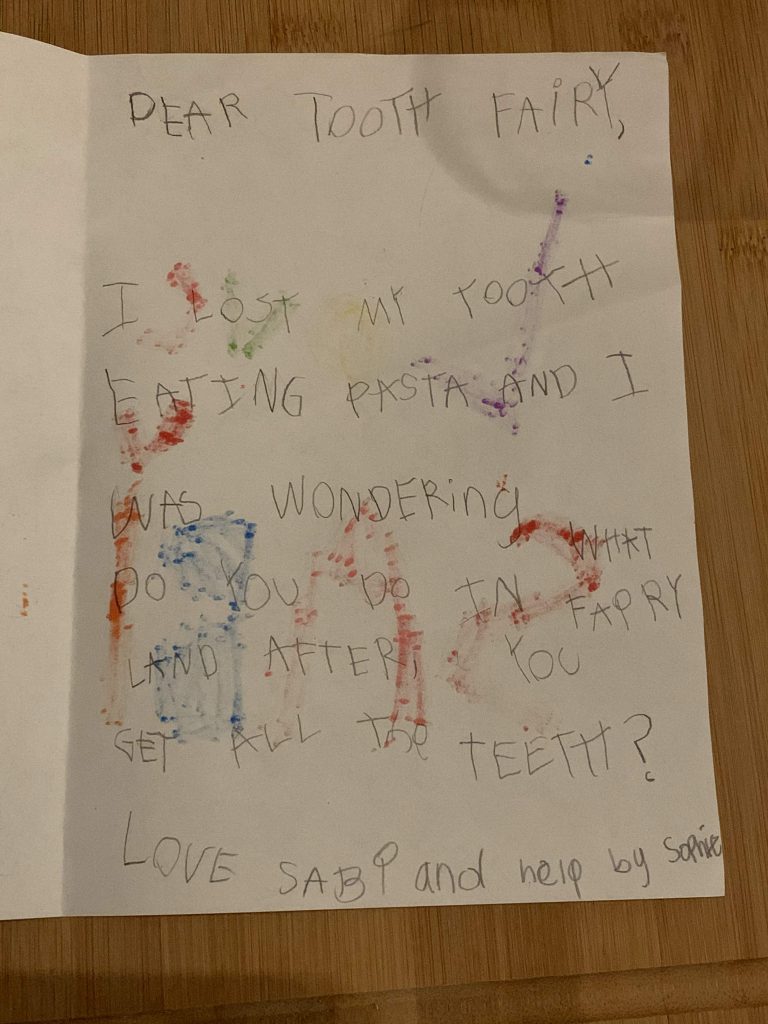 DEAR TOOTH FAiRY,
I LOST MY TOOTH
EATING PASTA AND I
WAS WONDERiNg
WHAT
DO YOU DO IN FAPRY
LAND AFTER, YOU
GET ALL The TEETH?
LOVE SABi and help by Sophie